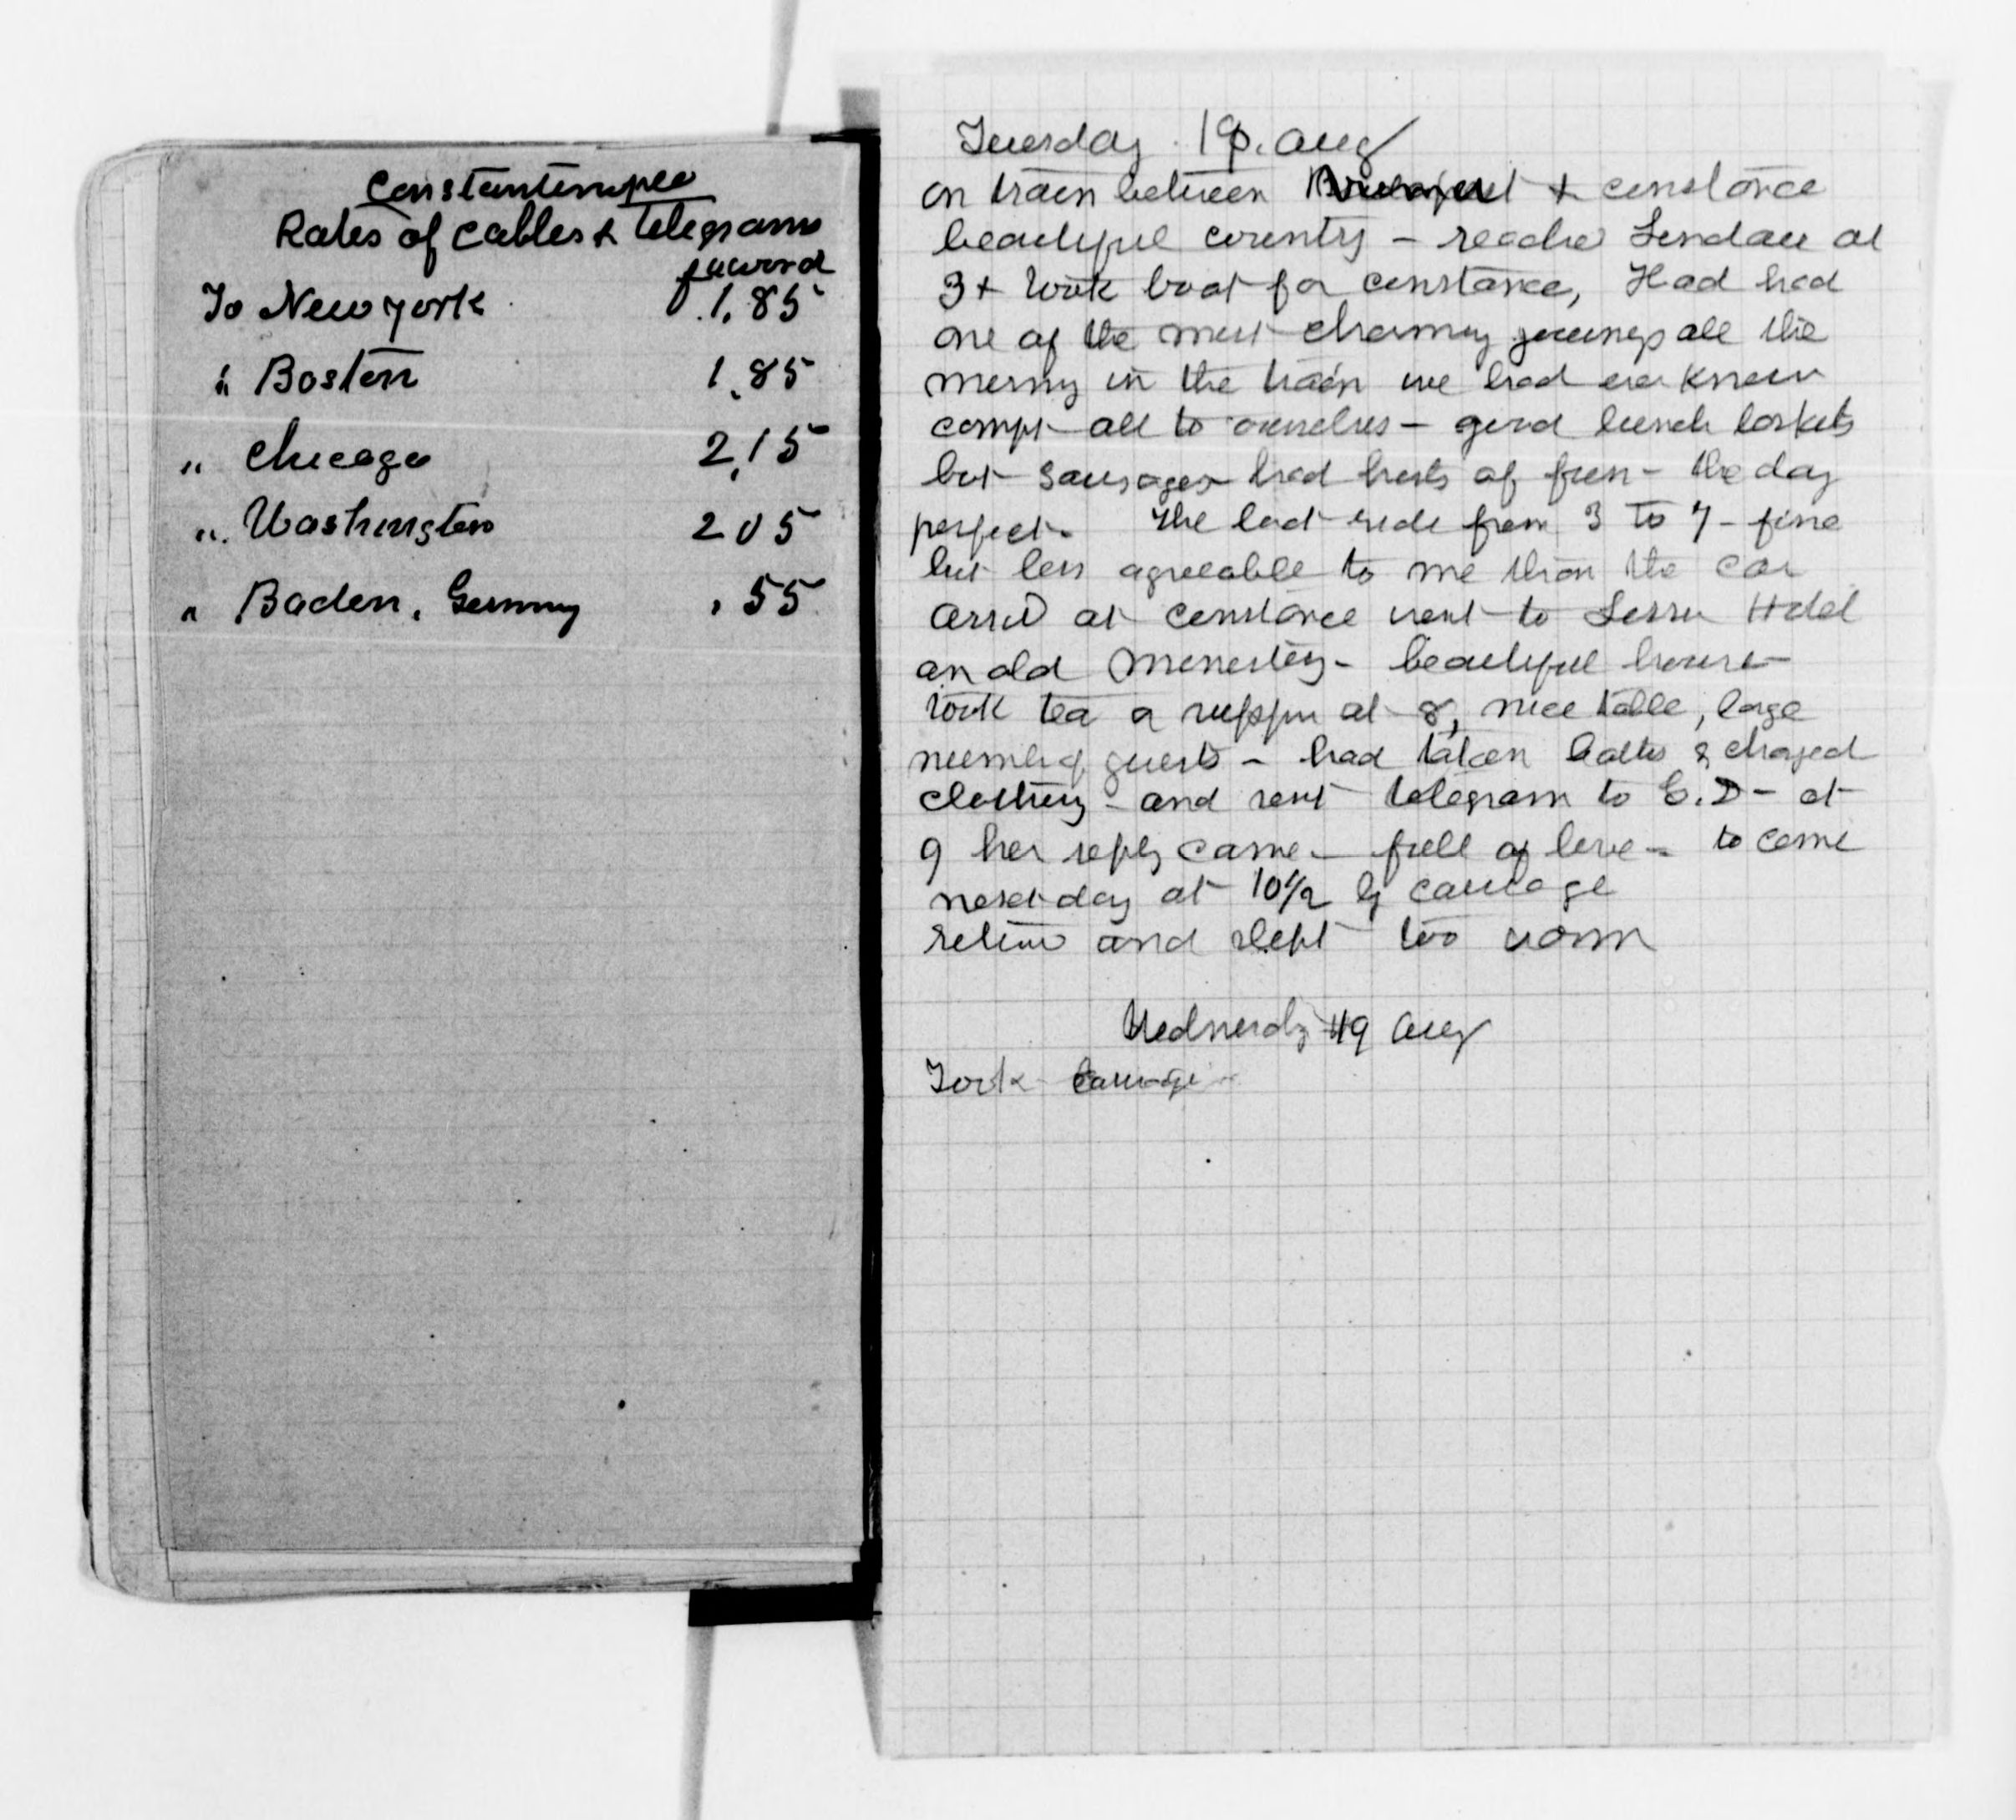 Constantinople
Rates of Cables & Telegrams
pr word
To New York 1.85
" Boston 1.85
" Chicago 2.15
" Washington 2 05
" Baden, Germany .55
Tuesday 19. Aug
on train between & Constance
beautiful country - reached Lindau at
3 + took boat for Constance, Had had
one of the most charming journeys all the
morning in the train we had ever known
compt all to ourselves - good lunch baskets
but sausages had hosts of fun - the day
perfect. The boat ride from 3 to 7 - fine
but less agreeable to me than the car
arrd at Constance went to Hotel
an old Monestery - beautiful house
took tea a supper at 8, nice table, large
number of guests - had taken baths & changed
clothing - and sent telegram to C.D - at
9 her reply came - full of love - to come
next day at 10 1/2 by carriage
retired and slept too warm
Wednesdy 19 Aug
Took Carriage